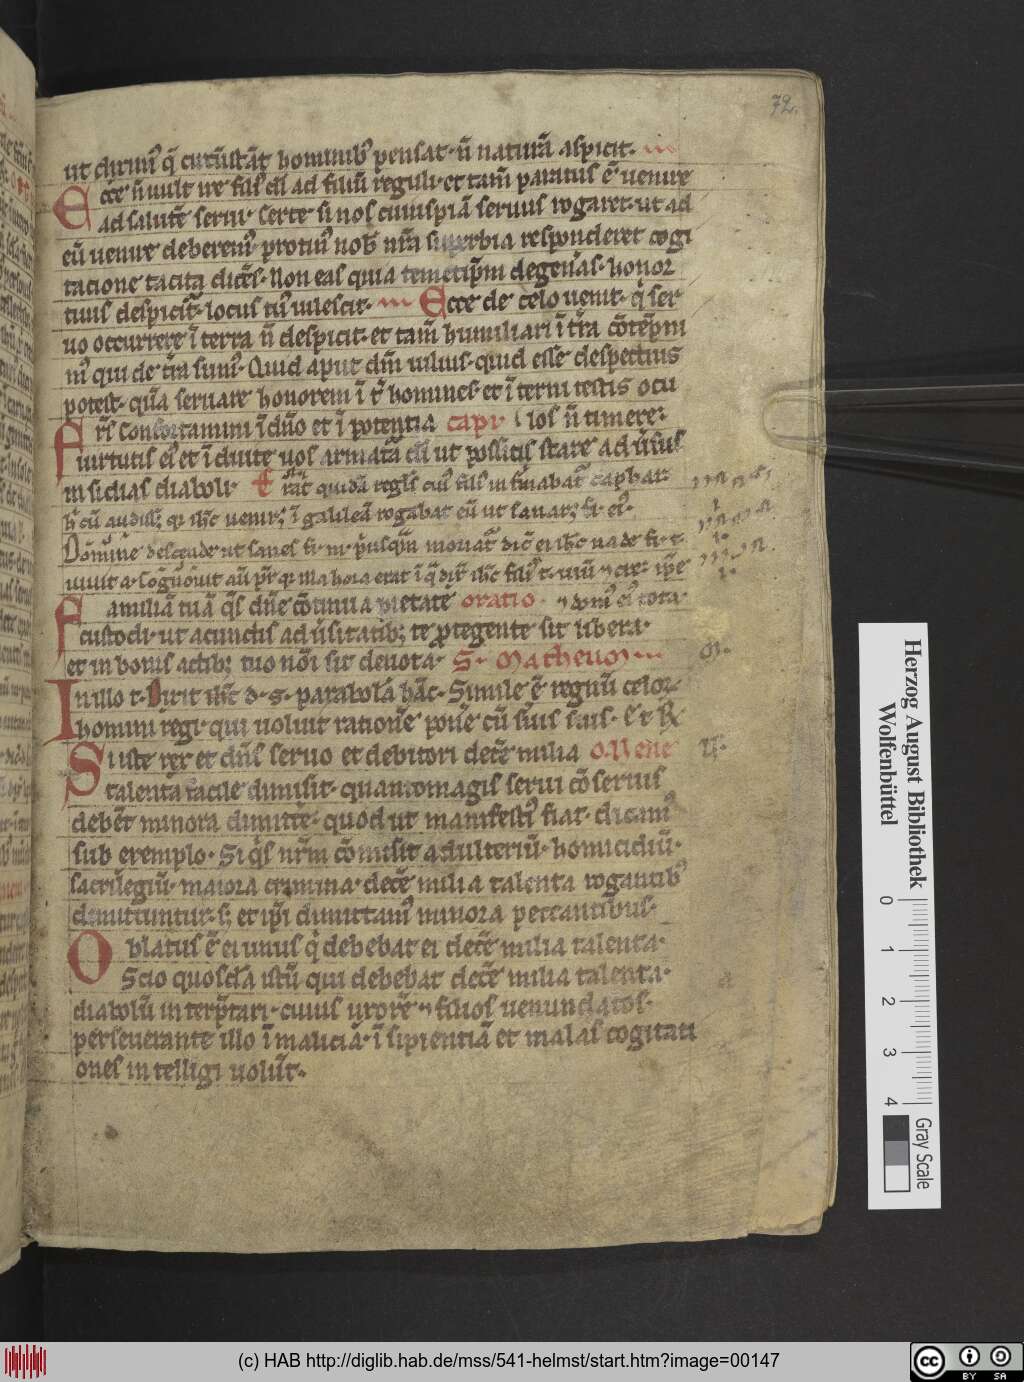 72.
ut diuiniꝰ q̇ circūstāt hominibꝰ pensat· ñ naturā aspicit.
Ecce ñ uult ire filiꝰ dī ad filiū reguli· et tam̄ paratus ē uenire
ad salutē serui· Certe si nos cuiuspiā seruus rogaret· ut ad
eū uenire deberemꝰ protinꝰ nob̄ nr̄a superbia responderet cogi
tacione tacita dicēs· Non eas quia temetip̄m degen̄as· honor
tuus despicit̄· locus tuꝰ uilescit· Ecce de celo uenit· q̇ ser
uo occurrere ī terra ñ despicit· et tam̄ humiliari ī tr̄a cōtēpnī
mꝰ qui de tr̄a sumꝰ· Quid aput dm̄ uilius· quid esse despectius
potest· quā seruare honorem ī t̄ homines· et ī terni testis ocu
los ñ timere·
capi
Fr̄s Confortamini ī dño et ī potentia
uirtutis eiꝰ et ī duite uos armatā dī ut possitis stare adūsus
insidias diaboli· Erāt quidā regl̄s cuiꝰ filiꝰ infirmabat̄ caphar
h̄ cū audiss; qꝫ ih̄c uenir; ī galileā rogabat eū ut sanar; fi· eiꝰ·
Domine descende ut sanes fi· m· p̄usqm̄ moriat̄ dic̄ ei ih̄c uade fi· t·
uiuit a· Cognouit aū pr̄ qꝫ illa hora erat ī q̄ dix̄ ih̄c filiꝰ t· uiuī ⁊ cre· ip̄e
⁊ domꝰ eiꝰ tota·
Familiā tuā q̄s dñe cōtinua pietate oratio
custodi· ut a cunctis aduersitatib; te ptegente sit libera·
et in bonis actib; tuo nōi sit deuota· S· Matheum
In illo t· Dixit ih̄c d· s· parabolā hāc· Simile ē regnū celoꝝ
homini regi· qui uoluit rationē ponē cū suis suis· Et R
Siuste rex et dn̄s seruo et debitori decē milia Omelie
talenta facile dimisit· quantomagis serui cōseruis
debēt minora dimitte· quod ut manifestiꝰ fiat· dicamꝰ
sub exemplo· Si q̇s nr̄m cōmisit adulteriū· homicidiū·
sacrilegiū· maiora crimina· decē milia talenta rogantibꝰ
dimittuntur· s; et ip̄i dimittamꝰ minora peccantibus·
Oblatus ē ei unus q̇ debebat ei decē milia talenta·
Scio quosdā istū qui debebat decē milia talenta·
diabolū interp̄tari· cuius uxorē ⁊ filios uenundatos·
perseuerante illo ī malicia· īsipientiā et malas cogitati
ones intelligi uolūt·
Herzog August Bibliothek
Wolfenbüttel
0 1 2 3 4
Gray Scale
(c) HAB http://diglib.hab.de/mss/541-helmst/start.htm?image=00147
cc BY SA